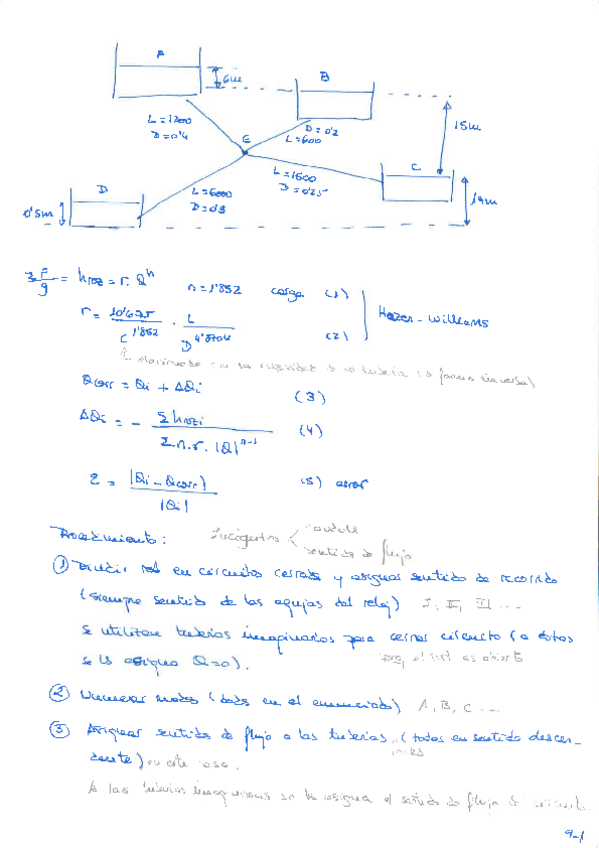 A
6m
B
L=1200
D=0'4
E
D=0'2
L=600
15m
C
L=1600
D=0'25
D
L=6000
D=0'3
0'5m
19m
3 F/g = hroz = r. Q^n   n=1'852   carga (1)
r = 10'675/C^1'852 · L/D^4'8704   (2)
Hazen-Williams
Qcorr = Qi + ΔQi   (3)
ΔQi = - Σhrozi / Σ.n.r.|Q|^n-1   (4)
ε = |Qi - Qcorr| / |Qi|   (5) error
Procedimiento: Incógnitas < caudal
sentido de flujo
① Dividir red en circuitos cerrados y asignar sentido de recorrido
(siempre sentido de las agujas del reloj) I, II, III ...
se utilizan tuberías imaginarias para cerrar circuito (a éstas
se les asigna Q=0). es abierto
② Numerar nodos (dado en el enunciado) A, B, C ...
③ Asignar sentido de flujo a las tuberías, (todas en sentido descen-
dente) en este caso.
A las tuberías imaginarias se les asigna el sentido de flujo
9-1